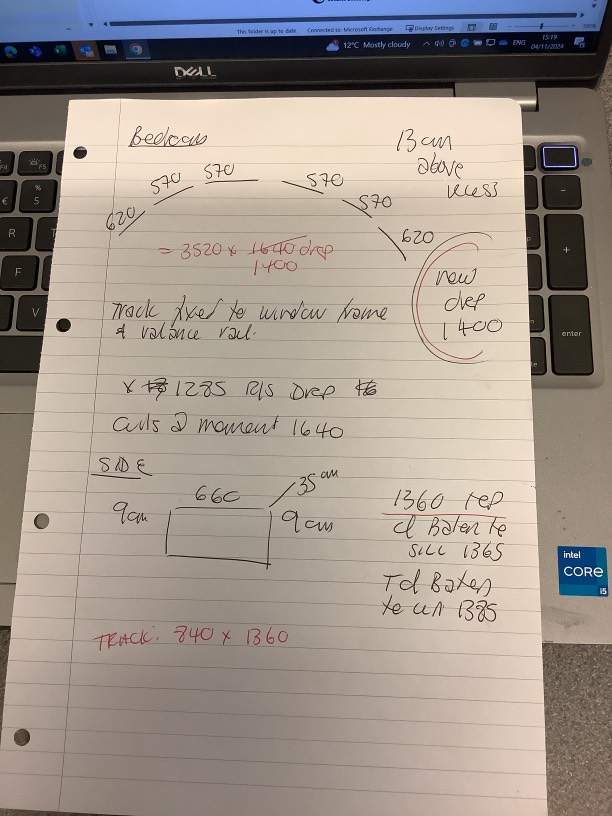 This folder is up to date. Connected to: Microsoft Exchange Display Settings
12°C Mostly cloudy ENG 15:19
04/11/2024
DELL
Bedroom
13cm
above
recess
620 570 570 570 570 620
= 3520 x 1640 drop
1400
new
drop
1400
Track fixed to window frame
& valance rail.
x 1285 R/S Drop
Curts @ moment 1640
SIDE
660 35cm
9cm 9cm
1360
sill 1365
1385
TRACK: 840 x 1360
F4
F5
%
5
€
R
F
V
-
+
enter
intel
CORE
i5